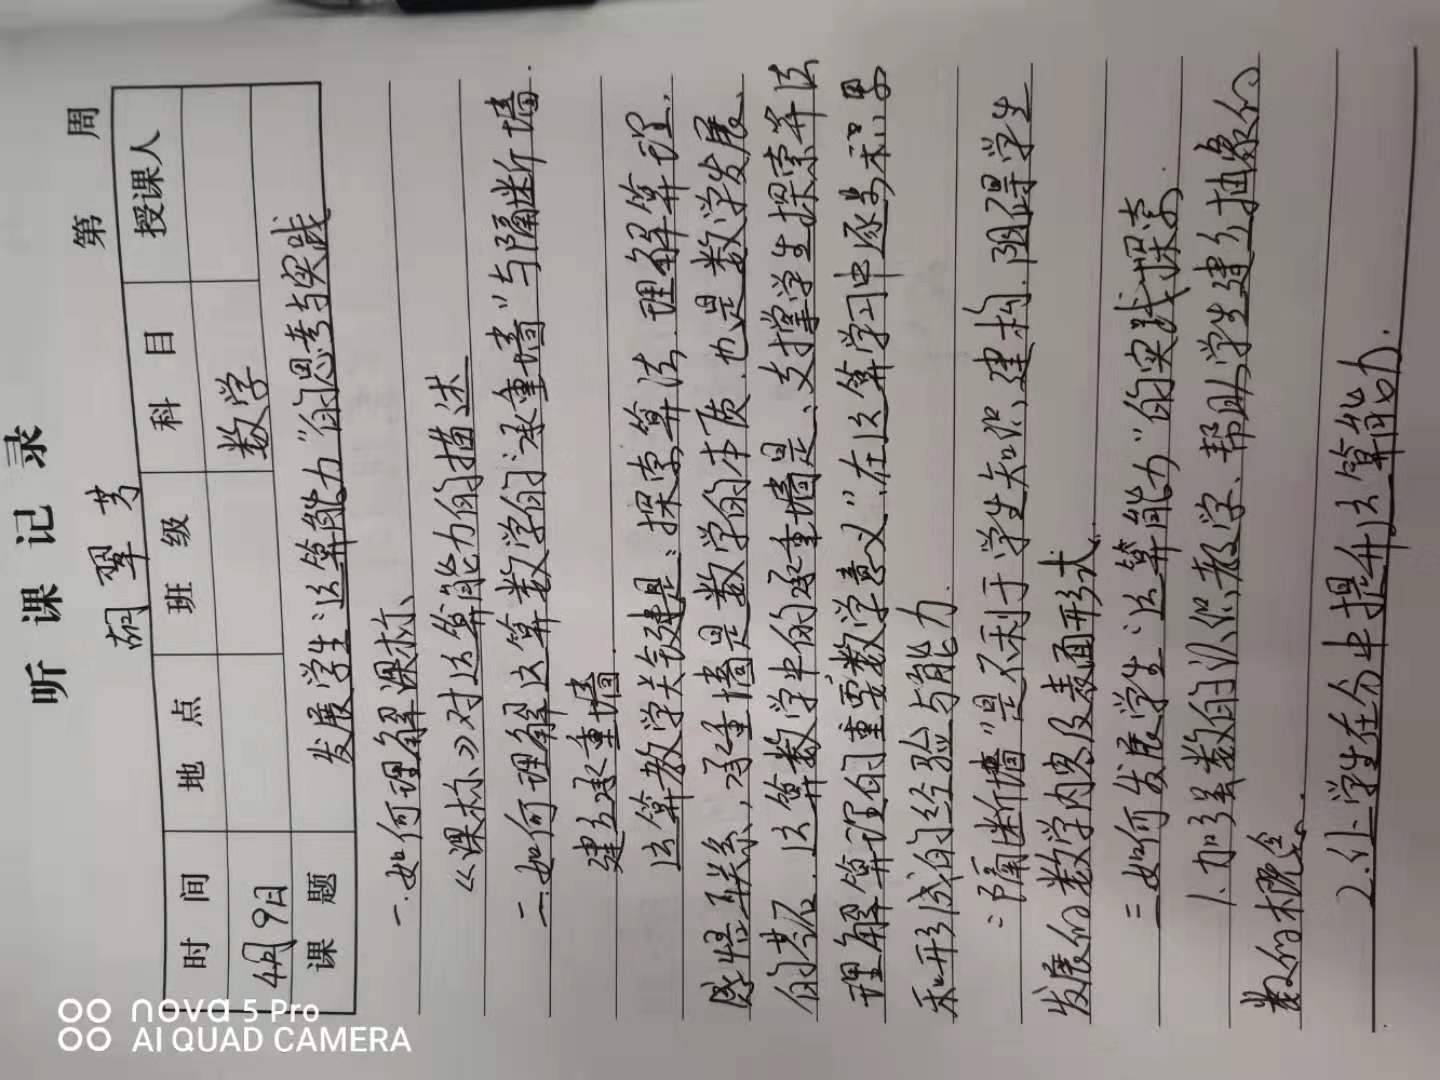 听课记录
胡翠芳
第 周
时间 地点 班级 科目 授课人
4月9日 数学
课题 发展学生“运算能力”的思考与实践
一.如何理解课标、
《课标》对运算能力的描述
二.如何理解运算教学的“承重墙”与隔断墙.
建承重墙.
运算教学关键是:探索算法.理解算理.
感悟联系,承重墙是数学的本质.也是数学发展
的基石.运算教学中的承重墙是、支撑学生探索算法
理解算理的重要“数学意义”在运算学习中逐步积累
和形成的经验与能力.
“隔断墙”是不利于学生知识建构.阻碍学生
发展的数学内容及表面形式.
三如何发展学生“运算能力”的实践探索.
1.加强数的认识教学、帮助学生建立抽象的
数的概念.
2.让学生在分中提升运算能力.
nova 5 Pro
AI QUAD CAMERA